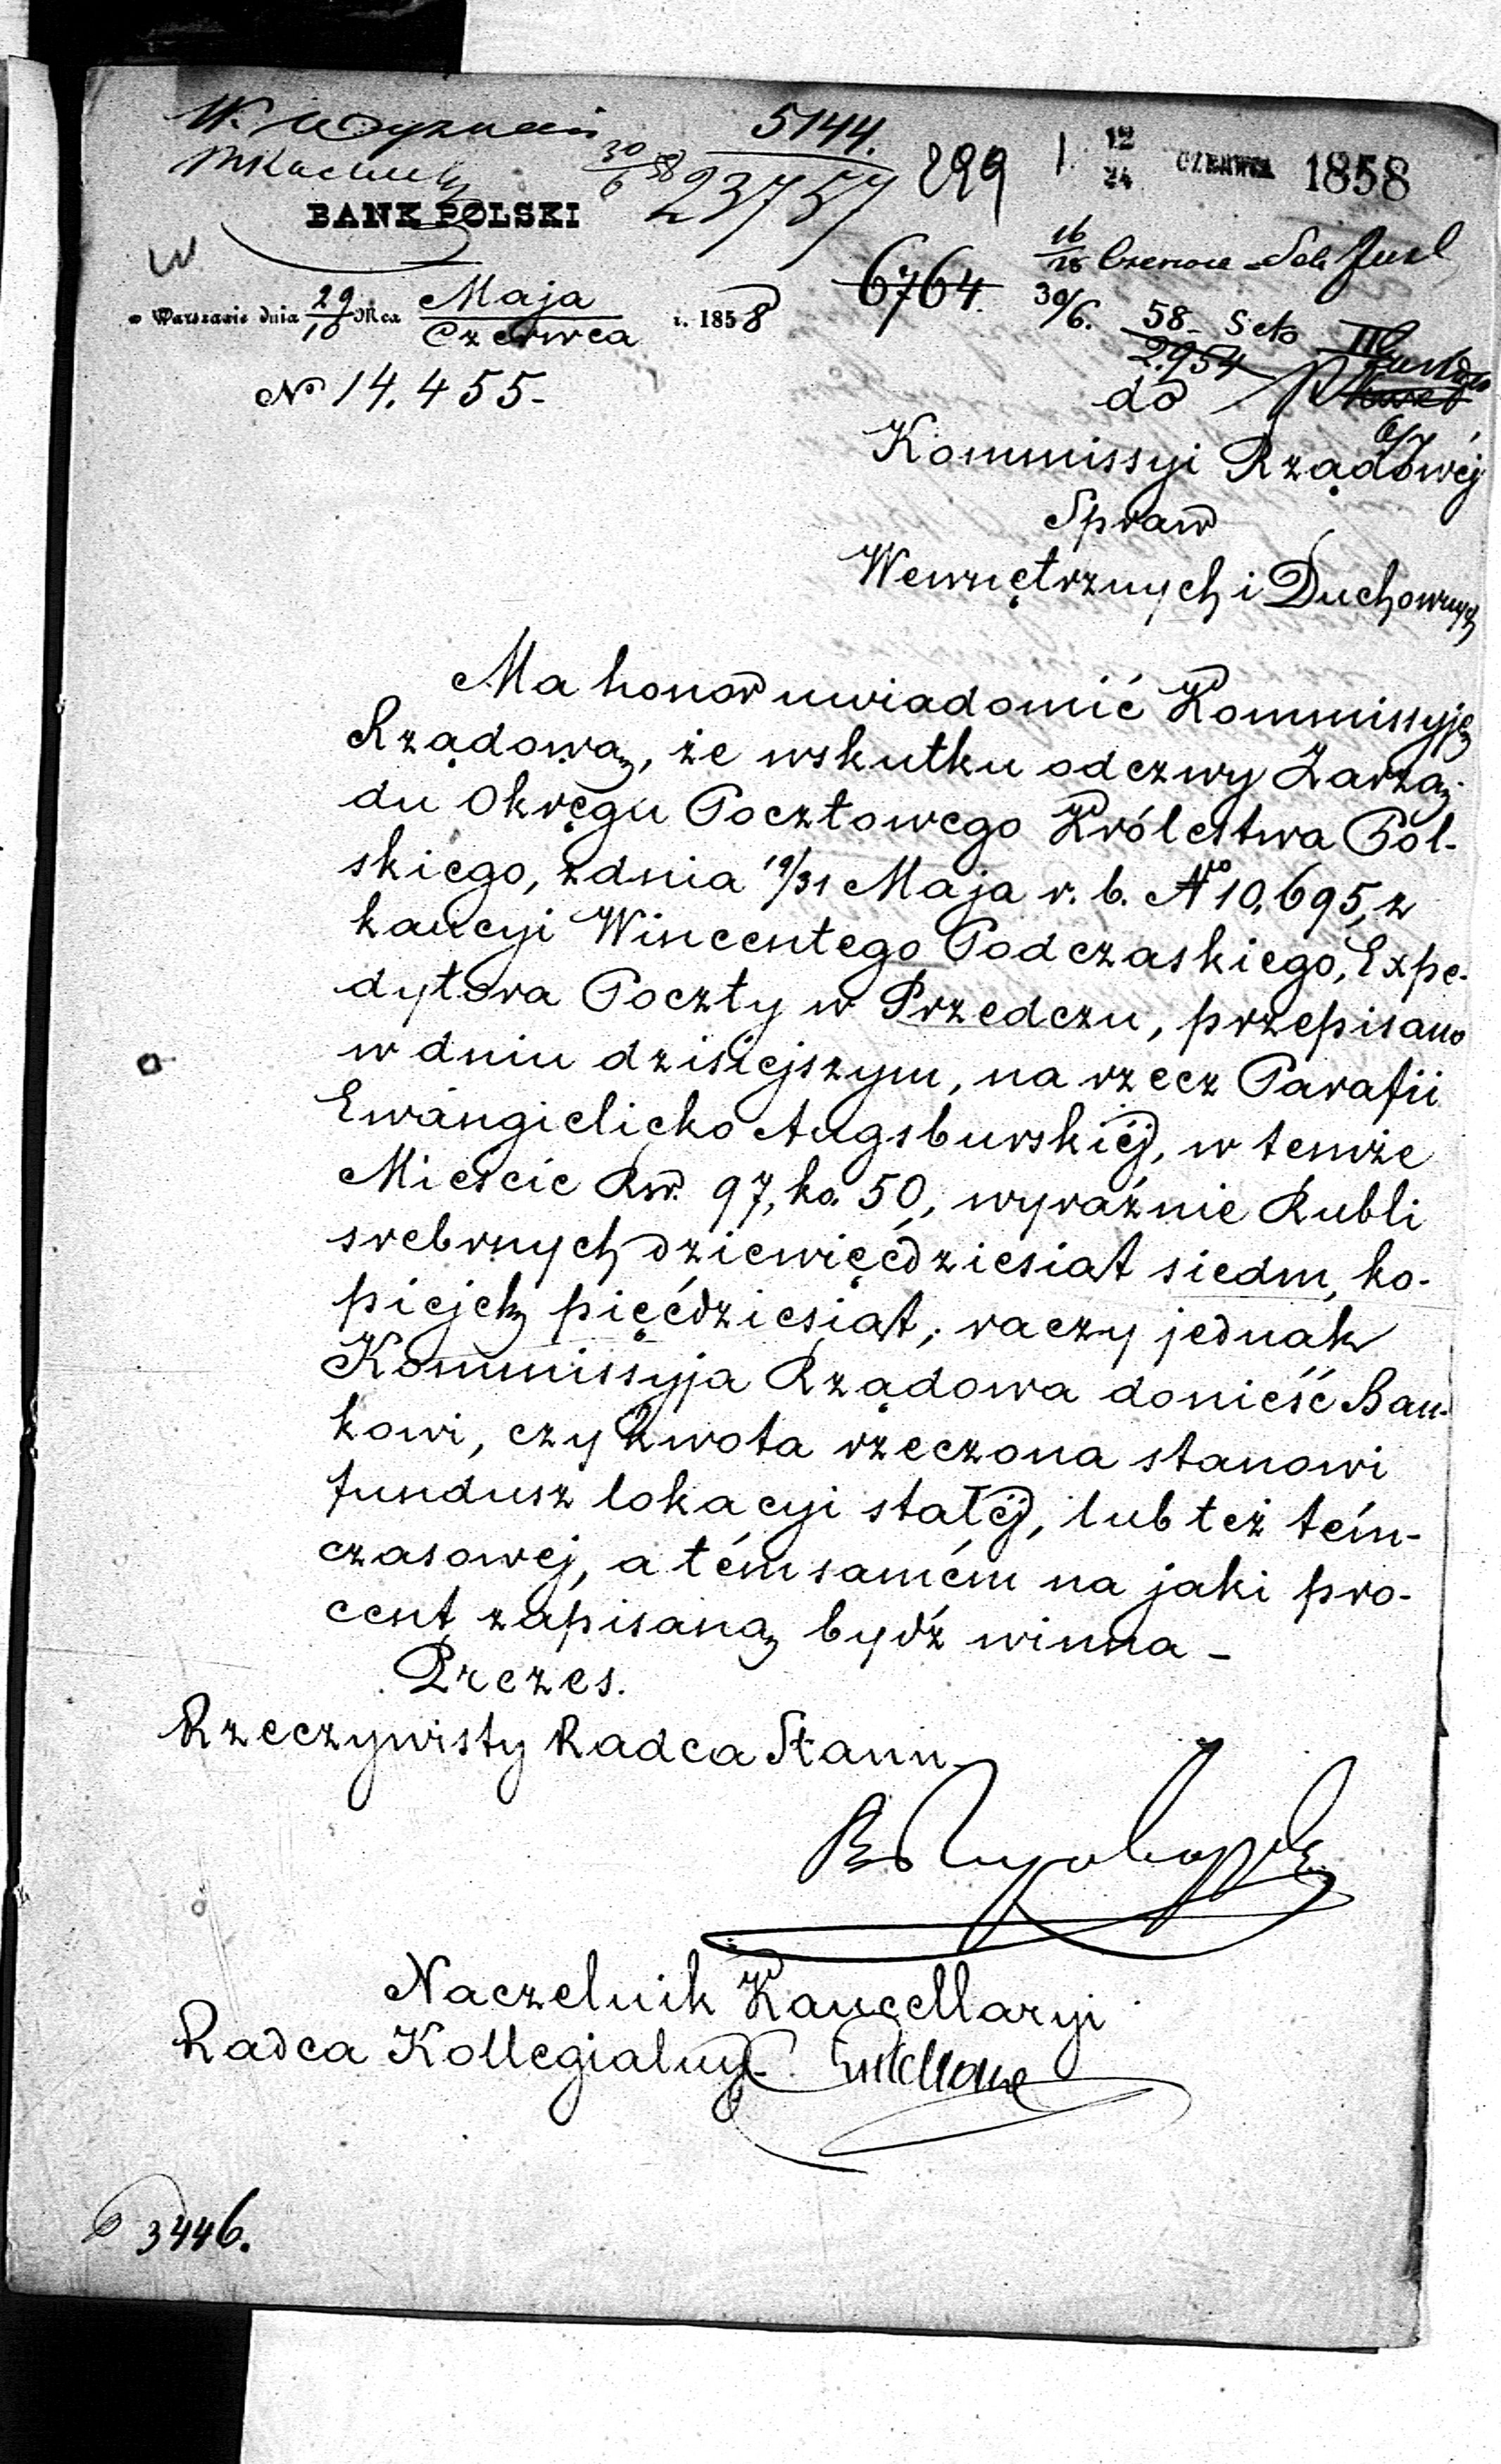 W. Wyznań
5144.
30/6 58 23757
299
12/24 CZERWCA 1858
BANK POLSKI
16/28 Czerwca
W
w Warszawie dnia 29/10 Mca Maja/Czerwca r. 1858
6764.
30/6. 58 - Sek III
2954
№ 14.455-
do
Kommissyi Rządowéj
Spraw
Wewnętrznych i Duchownych
Ma honor uwiadomić Kommissyję
Rządową, że wskutku odezwy Zarzą-
du Okręgu Pocztowego Królestwa Pol-
skiego, z dnia 19/31 Maja r. b. № 10,695, z
kaucyi Wincentego Podczaskiego, Expe-
dytora Poczty w Przedczu, przepisano
w dniu dzisiejszym, na rzecz Parafii
Ewangielicko Augsburskiéj, w temże
Mieście Rsr. 97, ko. 50, wyraźnie Rubli
srebrnych dziewięćdziesiąt siedm, ko-
piejek pięćdziesiąt; raczy jednak
Kommissyja Rządowa donieść Ban-
kowi, czy kwota rzeczona stanowi
fundusz lokacyi stałéj, lub też tém-
czasowej, a tém samém na jaki pro-
cent zapisaną bydź winna -
Prezes.
Rzeczywisty Radca Stanu
Naczelnik Kancellaryi
Radca Kollegialny
3446.